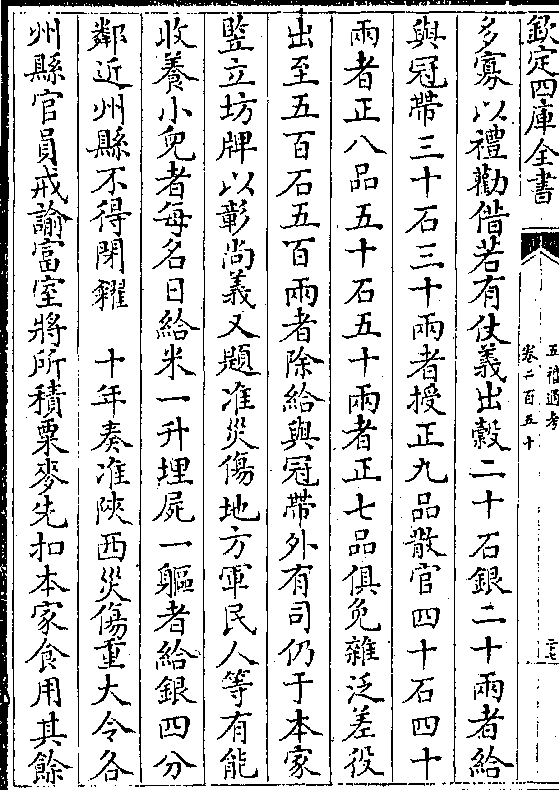 欽定四庫全書
五禮通考
卷二百五十
多寡以禮勸借若有仗義出糓二十石銀二十兩者給
與冠帶三十石三十兩者授正九品散官四十石四十
兩者正八品五十石五十兩者正七品俱免雜泛差役
出至五百石五百兩者除給與冠帶外有司仍于本家
豎立坊牌以彰尚義又題准災傷地方軍民人等有能
收養小兒者每名日給米一升埋屍一軀者給銀四分
鄰近州縣不得閉糴　十年奏准陝西災傷重大令各
州縣官員戒諭富室將所積粟麥先扣本家食用其餘